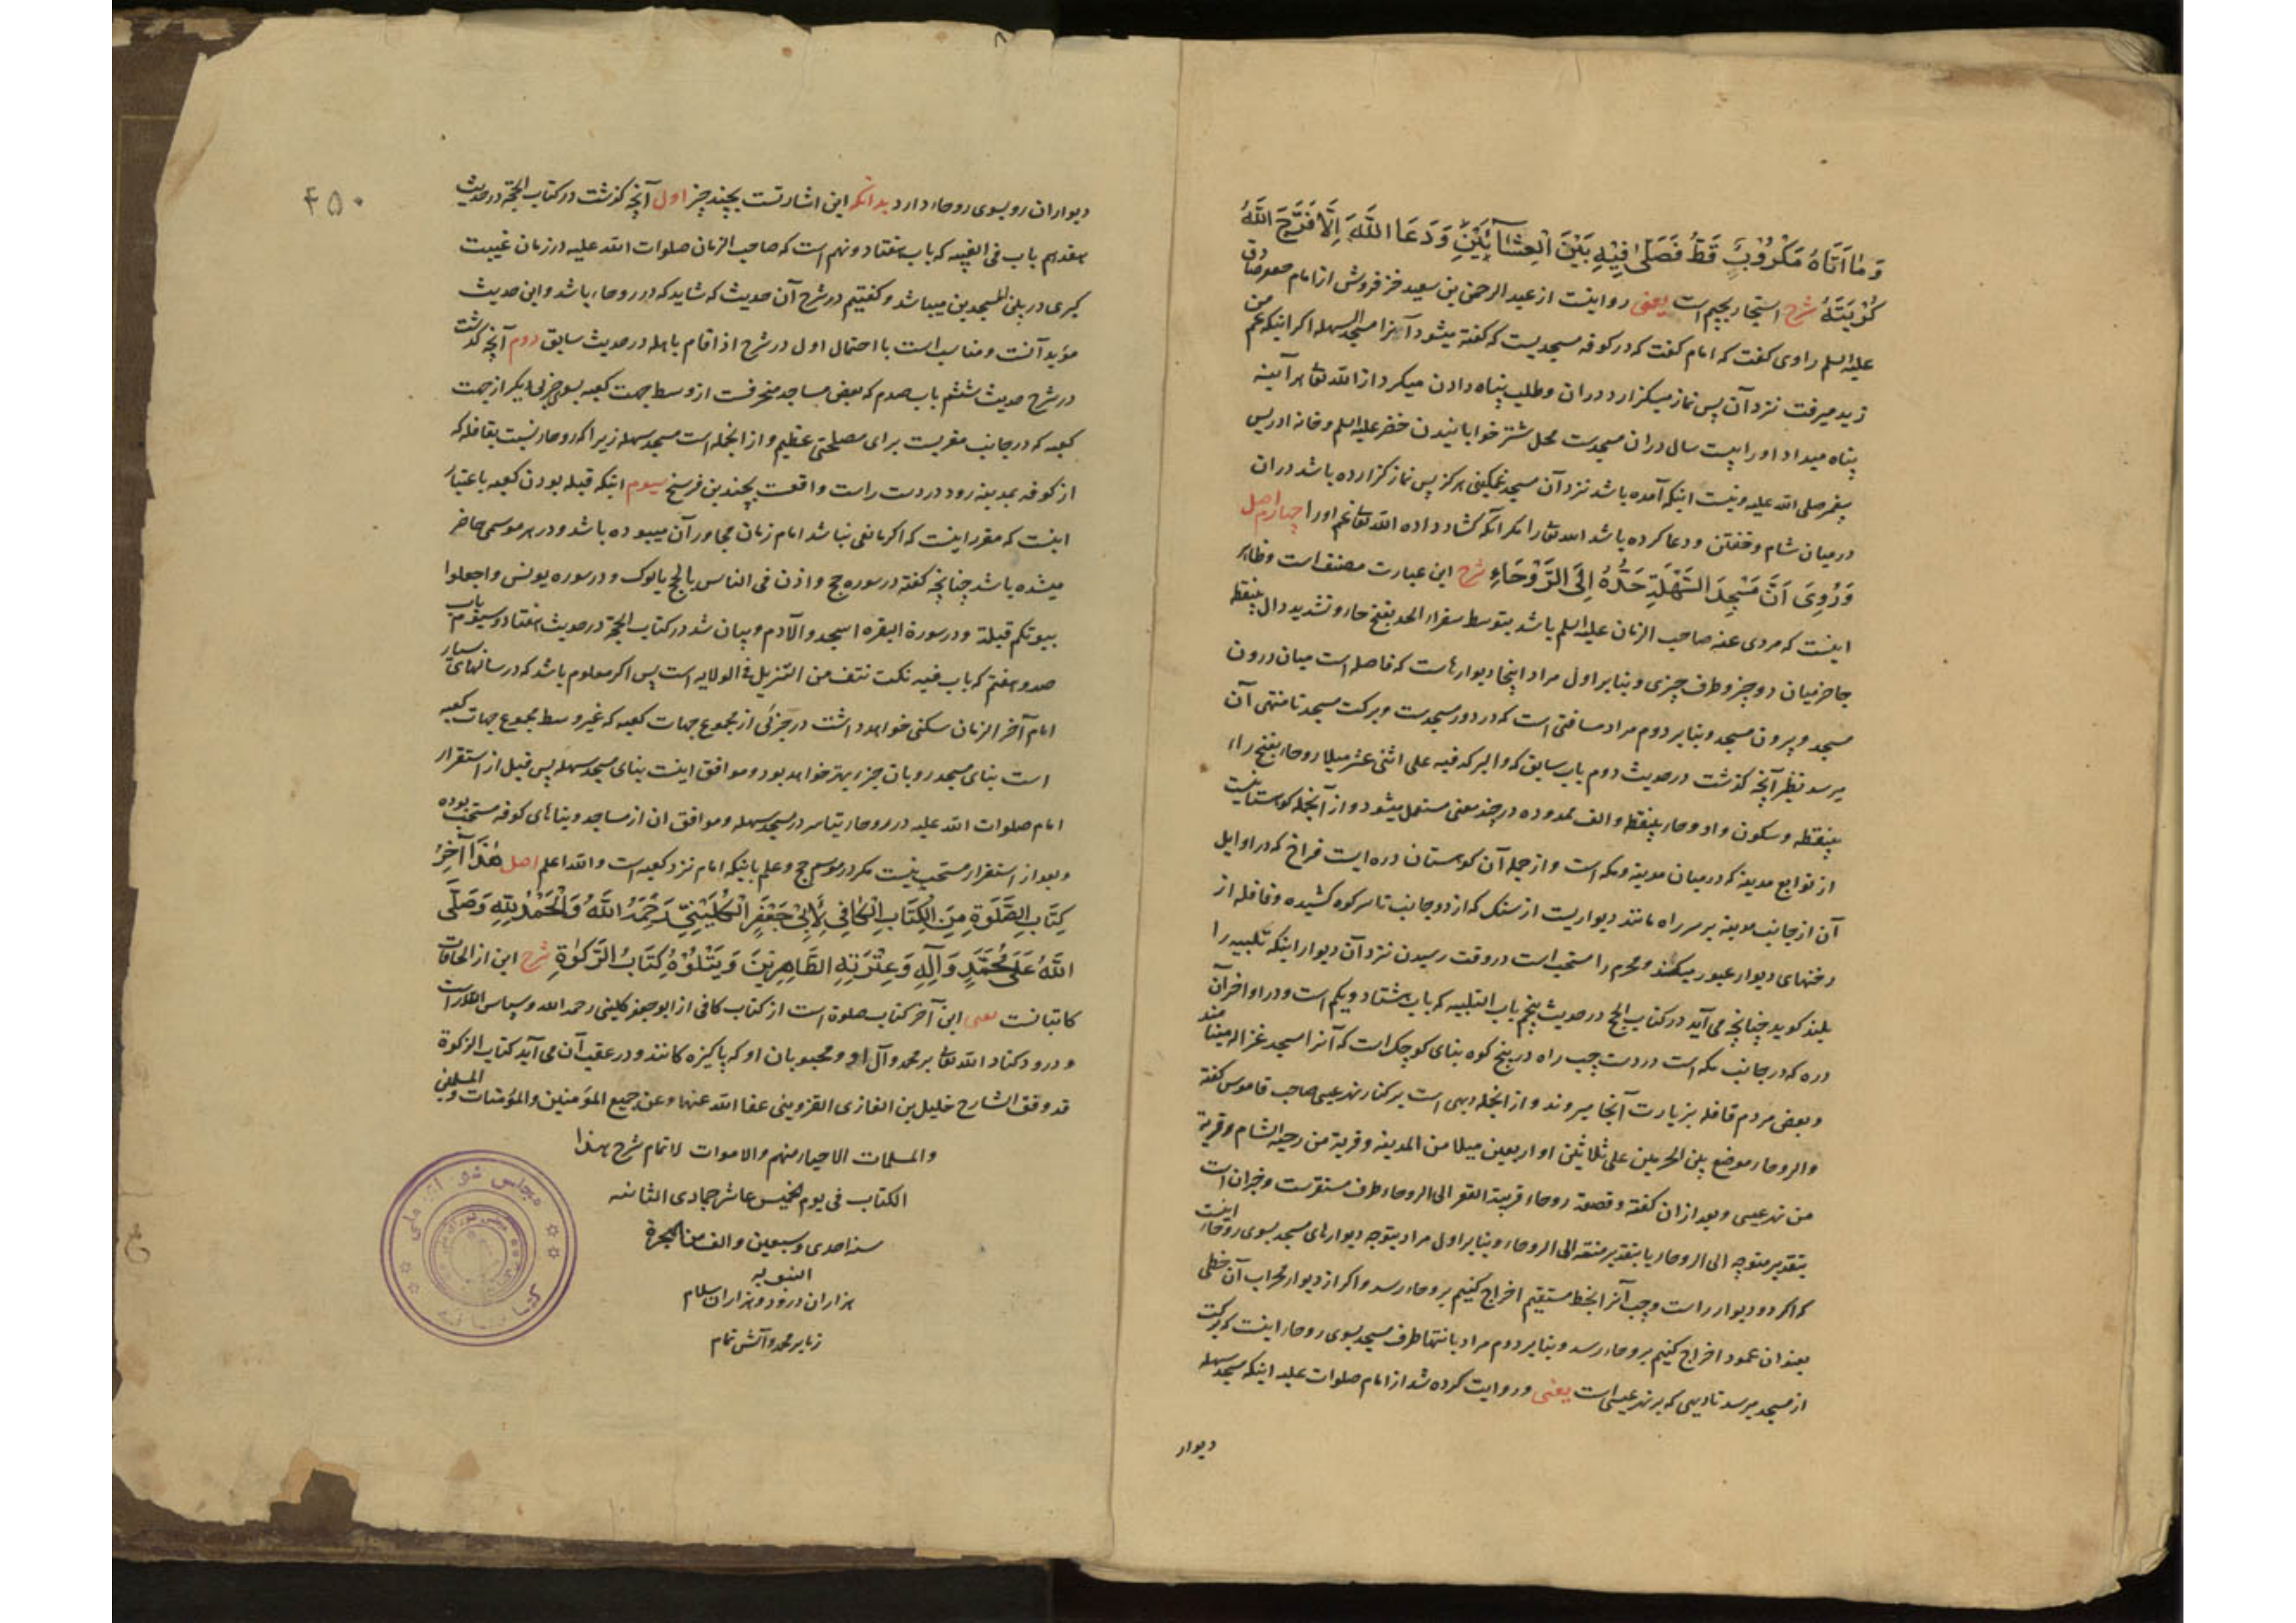 وَمٰا اَتَاهُ مَكْرُوْبٌ قَطُّ فَصَلّٰى فِيْهِ بَيْنَ الْعِشٰآئَيْنِ وَدَعَا اللَّهَ اِلَّا فَرَّجَ اللَّهُ
كُرْبَتَهُ شرح استجار بجیم است یعنی روایتست از عبد الرحمن بن سعید خز فروش از امام جعفر صادق
علیه السلم راوی گفت که امام گفت که در کوفه مسجدیست که گفته میشود آنرا مسجد السهله اگر اینکه عم من
زید میرفت نزد آن پس نماز میگزارد دران و طلب پناه دادن میکرد از الله تعا هر آینه
پناه میداد او را بیست سال دران مسجدست محل شتر خوابانیدن خضر علیه السلم و خانه ادریس
پیغمبر صلی الله علیه و نیست اینکه آمده باشد نزد آن مسجد غمگینی هرگز پس نماز گزارده باشد دران
درمیان شام و خفتن و دعا کرده باشد الله تعا را مگر آنکه گشاد داده الله تعا غم او را چهارم اصل
وَرُوِىَ اَنَّ مَسْجِدَ السَّهْلَةِ حَدُّهُ اِلَى الرَّوْحَاءِ شرح این عبارت مصنف است و ظاهر
اینست که مروی عنه صاحب الزمان علیه السلم باشد بتوسط سفراء الحد بفتح حاء و تشدید دال بینقطه
حاجز میان دو چیز و طرف چیزی و بنابر اول مراد اینجا دیوارهاست که فاصله است میان درون
مسجد و بیرون مسجد و بنابر دوم مراد مسافتی است که در دور مسجدست و برکت مسجد تا منتهی آن
میرسد نظیر آنچه گذشت در حدیث دوم باب سابق که والبرکه فیه علی اثنی عشر میلا روحاء بفتح راء
بینقطه و سکون واو و حاء بینقطه و الف ممدوده در چند معنی مستعمل میشود و از آنجمله کوهستانیست
از توابع مدینه که درمیان مدینه و مکه است و از جمله آن کوهستان دره ایست فراخ که در اوایل
آن از جانب مدینه بر سر راه مانند دیواریست از سنگ که از دو جانب تا سر کوه کشیده و قافله از
رخنهای دیوار عبور میکنند و محرم را مستحب است در وقت رسیدن نزد آن دیوار اینکه تلبیه را
بلند گوید چنانچه می آید در کتاب الحج در حدیث پنجم باب التلبیه که باب هشتاد و یکم است و در اواخر آن
دره که در جانب مکه است در دست چپ راه در بیخ کوه بنای کوچک است که آنرا مسجد غزاله مینامند
و بعض مردم قافله بزیارت آنجا میروند و از انجمله دیهی است بر کنار نهر عیسی صاحب قاموس گفته
والروحاء موضع بین الحرمین علی ثلاثین او اربعین میلا من المدینه و قریة من رحبة الشام و قریة
من نهر عیسی و بعد ازان گفته و قصعة روحاء قریبة القعر الی الروحاء ظرف مستقرست و خبر ان است
بتقدیر متوجه الی الروحاء یا بتقدیر منته الی الروحاء و بنابر اول مراد بتوجه دیوارهای مسجد بسوی روحاء اینست
که اگر دو دیوار راست و چپ آنرا بخط مستقیم اخراج کنیم بروحاء رسد و اگر از دیوار محراب آن خطی
بعنوان عمود اخراج کنیم بروحاء رسد و بنابر دوم مراد بانتها طرف مسجد بسوی روحاء اینست که برکت
از مسجد میرسد تا دیهی که بر نهر عیسی است یعنی و روایت کرده شد از امام صلوات علیه اینکه مسجد سهله
دیوار
۴۵۰
دیواران رو بسوی روحاء دارد بدانکه این اشارتست بچند چیز اول آنچه گذشت در کتاب الحجة در حدیث
هفدهم باب فی الغیبه که باب هفتاد و نهم است که صاحب الزمان صلوات الله علیه در زمان غیبت
کبری در بین المسجدین میباشد و گفتیم در شرح آن حدیث که شاید که در روحاء باشد و این حدیث
مؤید آنست و مناسب است با احتمال اول در شرح اذا قام باهله در حدیث سابق دوم آنچه گذشت
در شرح حدیث ششم باب صدم که بعض مساجد منحرفست از وسط جهت کعبه بسوی جزئی دیگر از جهت
کعبه که در جانب مغربست برای مصلحتی عظیم و از انجمله است مسجد سهله زیرا که روحاء نسبت بقافله که
از کوفه بمدینه رود در دست راست واقعست بچندین فرسخ سیوم اینکه قبله بودن کعبه باعتبار
اینست که مقرر اینست که اگر مانعی نباشد امام زمان مجاور آن میبوده باشد و در هر موسمی حاضر
میشده باشد چنانچه گفته در سوره حج و اذن فی الناس بالحج یاتوک و در سوره یونس واجعلوا
بیوتکم قبلة و در سورة البقره اسجدوا لآدم و بیان شد در کتاب الحجة در حدیث هفتاد و سیوم باب
صد و هفتم که باب فیه نکت نتف من التنزیل فی الولایه است پس اگر معلوم باشد که در سالهای بسیار
امام آخر الزمان سکنی خواهد داشت در جزئی از مجموع جهات کعبه که غیر وسط مجموع جهات کعبه
است بنای مسجد رو بان جزء بهتر خواهد بود و موافق اینست بنای مسجد سهله پس قبل از استقرار
امام صلوات الله علیه در روحاء تیاسر در مسجد سهله و موافق ان از مساجد و بناهای کوفه مستحب بوده
و بعد از استقرار مستحب نیست مگر در موسم حج و علم باینکه امام نزد کعبه است والله اعلم اصل هٰذَا آخِرُ
كِتَابِ الصَّلٰوةِ مِنَ الْكِتَابِ الْكَافِي لِأَبِىْ جَعْفَرٍ الْكُلَيْنِىِّ رَحِمَهُ اللَّهُ وَالْحَمْدُ لِلّٰهِ وَصَلَّى
اللَّهُ عَلٰى مُحَمَّدٍ وَآلِهِ وَعِتْرَتِهِ الطَّاهِرِيْنَ وَيَتْلُوْهُ كِتَابُ الزَّكوٰةِ شرح این از الحاقات
کاتبانست یعنی این آخر کتاب صلوة است از کتاب کافی از ابو جعفر کلینی رحمه الله و سپاس الله راست
و درود کناد الله تعا بر محمد و آل او و محبوبان او که پاکیزه کانند و در عقب آن می آید کتاب الزکوة
قد وفق الشارح خلیل بن الغازی القزوینی عفا الله عنهما و عن جمیع المؤمنین والمؤمنات والمسلمین
والمسلمات الاحیاء منهم والاموات لاتمام شرح هذا
الکتاب فی یوم الخمیس عاشر جمادی الثانیه
سنه احدی و سبعین والف من الهجرة
النبویه
هزاران درود و هزاران سلام
ز ما بر محمد و آلش تمام